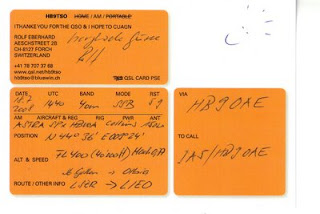 HB9TSO HOME / AM / PORTABLE
I THANK YOU FOR THE QSO & I HOPE TO CUAGN
ROLF EBERHARD
AESCHSTREET 2B
CH-8127 FORCH
SWITZERLAND
+41 76 707 37 68
www.qsl.net/hb9tso
hb9tso@bluewin.ch
QSL CARD PSE
DATE UTC BAND MODE RST
18.7. 2008 1440 40m SSB 59
AM AIRCRAFT & REG RIG ANT
ASTRA SPX
POSITION N 44° 36' E 008° 24'
ALT & SPEED FL400 (40'000ft)
ROUTE / OTHER INFO LSGR → LIEO
VIA
HB9OAE
TO CALL
IA5/HB9OAE